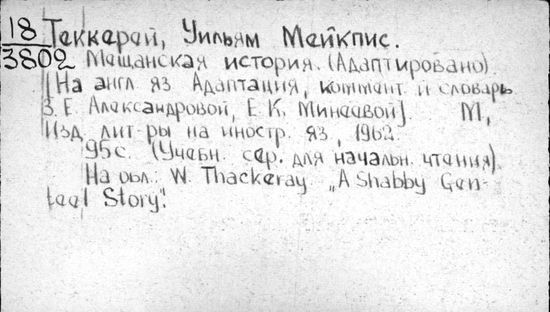 18 Теккерей, Уильям Мейкпис.
3802 Мещанская история. (Адаптировано).
[На англ. яз. Адаптация, коммент. и словарь
З. Е. Александровой, Е. К. Минаевой]. М.,
Изд. лит-ры на иностр. яз., 1962.
95с. (Учебн. сер. для начальн. чтения).
На обл.: W. Thackeray. „A Shabby Gen-
teel Story".